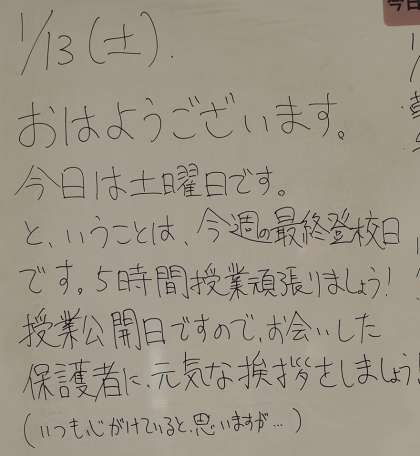 1/13(土).
おはようございます。
今日は土曜日です。
と、いうことは、今週の最終登校日
です。5時間授業頑張りましょう!
授業公開日ですので、お会いした
保護者に、元気な挨拶をしましょう!
(いつも心がけていると、思いますが…)
今日